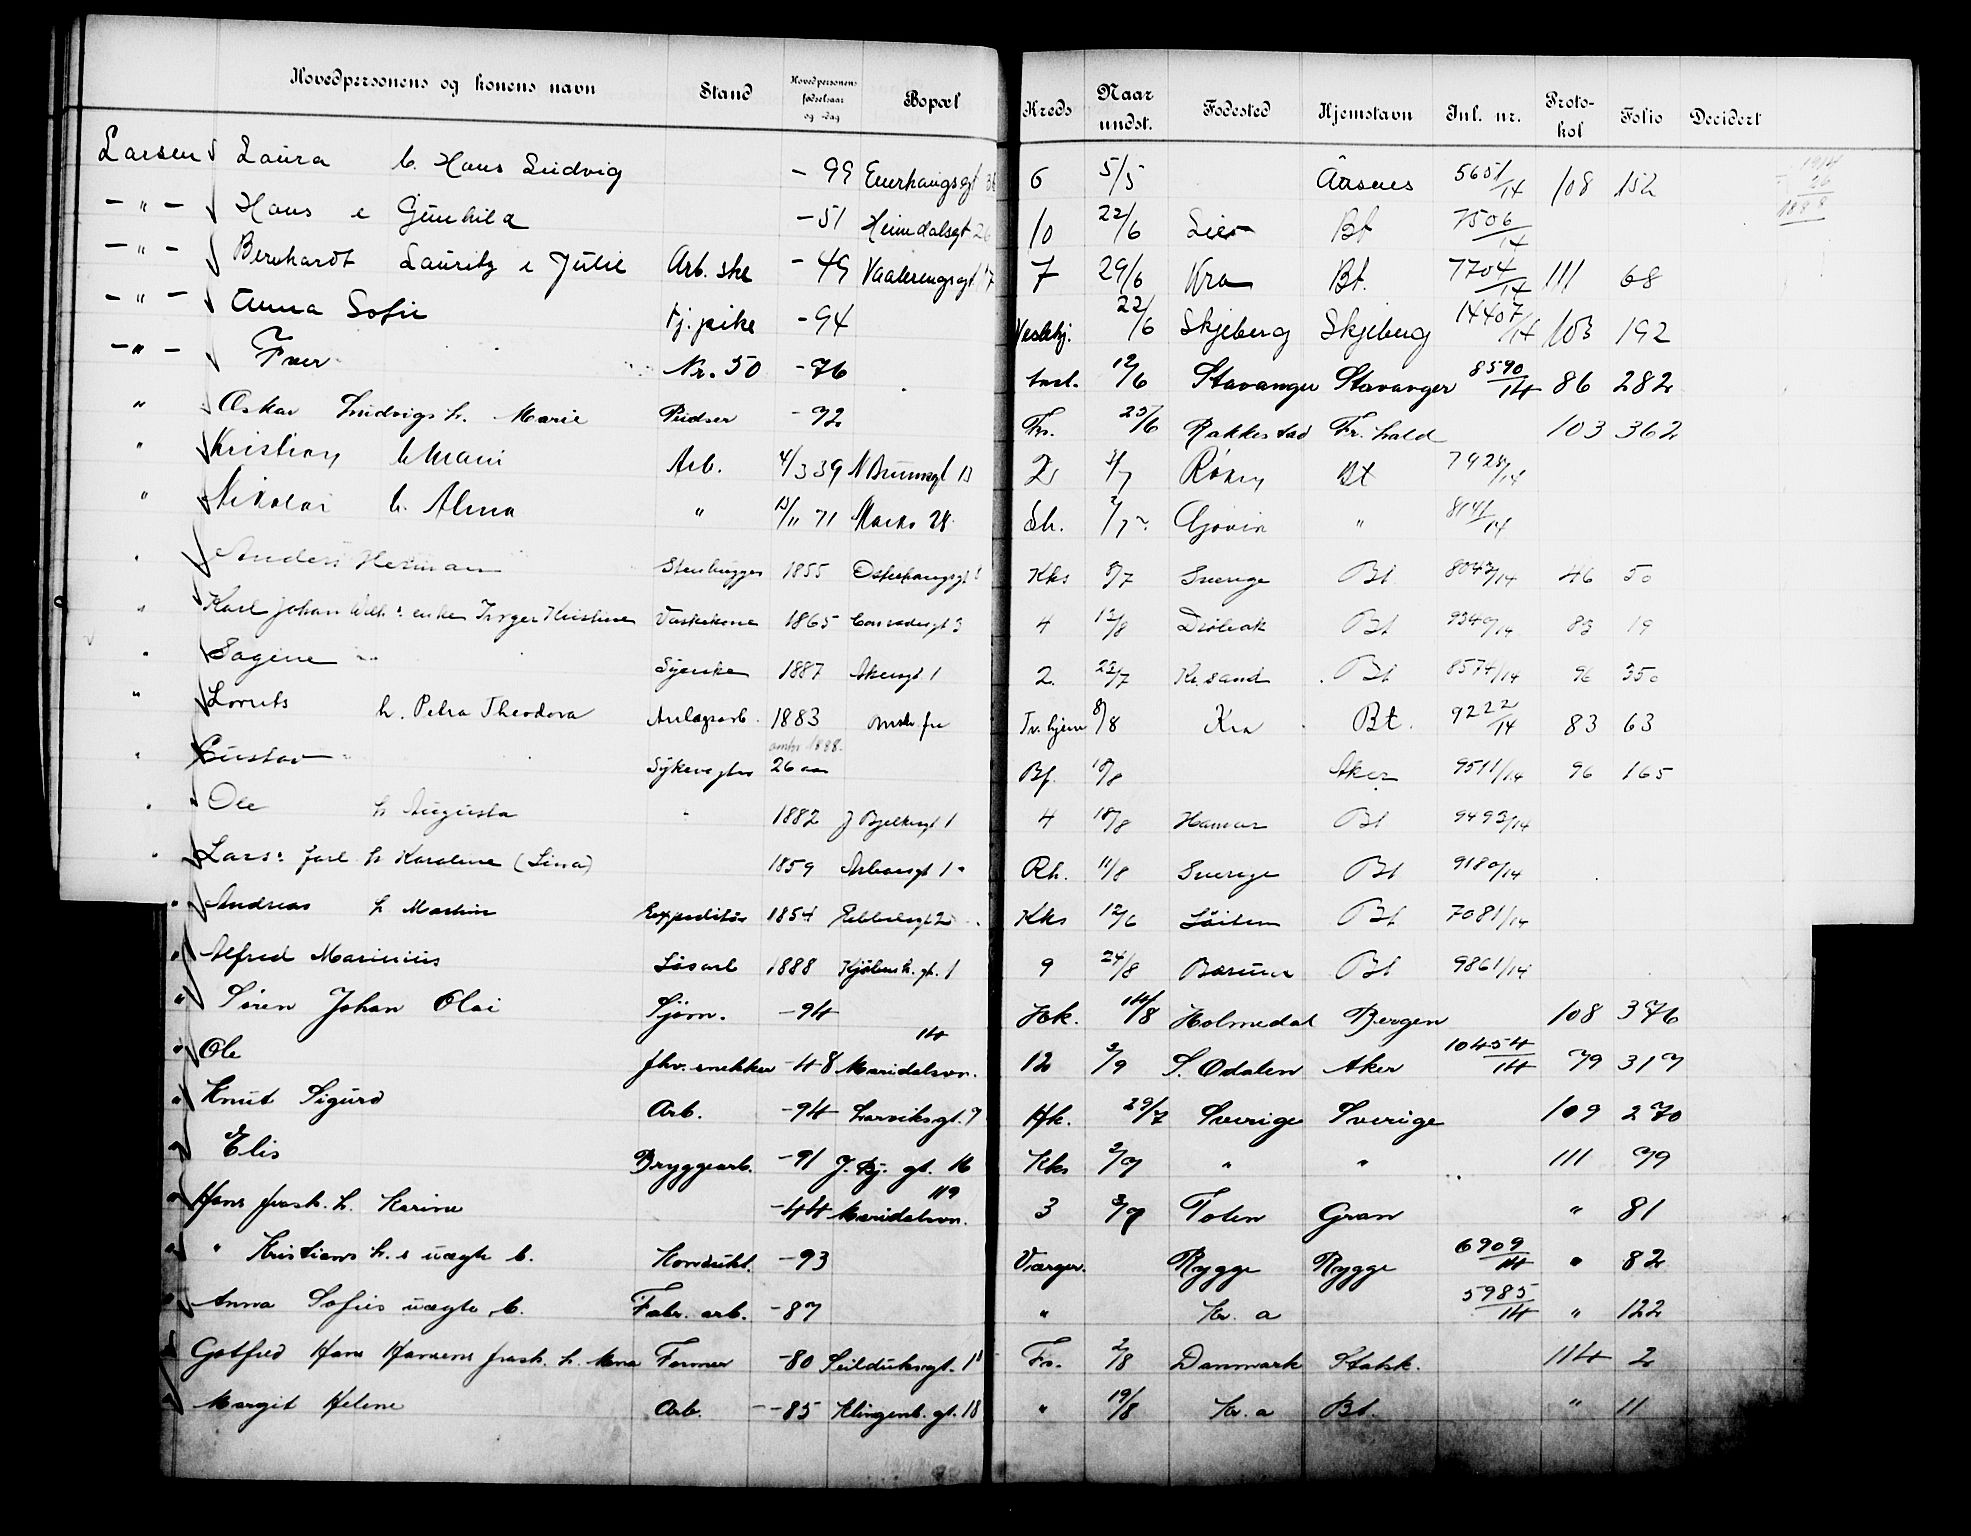 Hovedpersonens og konens navn Stand Hovedpersonens fødselsaar og -dag Bopæl Kreds Naar undst. Fødested Hjemstavn Inl. nr. Proto-kol Folio Decidert
Larsen Laura b. Hans Ludvig - 99 Enerhaugsgt 36 6 5/5 Aasnes 5651/14 108 152
- " - Hans e Gunhild - 51 Heimdalsgt 26 10 22/6 Lier Bt 7506/14
- " - Bernhardt Lauritz e Julie Arb. ske - 49 Vaalerengsgt 17 7 29/6 Kra Bt. 7704/14 111 68
- " - Anna Sofie Tj. pike - 94 22/6 Skjeberg Skjeberg 14407/14 103 192
- " - Iver Nr. 50 - 76 Anst. 12/6 Stavanger Stavanger 8590/14 86 282
" Oskar Ludvigs h. Marie Pudser - 72 Fr. 25/6 Rakkestad Fr. hald 103 362
" Kristian h Marie Arb. 4/3 39 N Brunsgt 13 2 /7 Røken Bt 7925/14
" Nikolai h. Alma " 13/11 71 Markv 28 Sh. 2/7 Gjøvik " 8141/14
" Anders Herman Stenhugger 1855 Østerhausgt Kks 8/7 Sverige Bt 8043/14 46 50
" Karl Johan Wilh.s enke Inger Kristine Vaskekone 1865 Conradisgt 3 4 12/8 Drøbak Bt 9340/14 83 19
" Sagine Syerske 1887 Akersgt 1 2. 22/7 Kr.sand Bt 8574/14 96 350
" Lorents h. Petra Theodora Anlægsarb. 1883 Tv. hjem 8/8 Kra Bt. 9222/14 83 63
" Gustav Sykevogter omkr 1888. 26 aar Bf. 10/8 Aker 9511/14 96 165
" Ole h Augusta " 1882 J Bjelkesgt 1 4 18/8 Hamar Bt 9493/14
" Lars: Jarl h Karoline (Lina) 1859 1 Rh. 11/8 Sverige Bt 9180/14
" Andreas h Martine Expeditør 1854 2 Kks 12/6 Løiten Bt 7081/14
" Alfred Marinius Løsarb 1888 Kjølenh. gt. 1 9 24/8 Bærum Bt 9861/14
" Søren Johan Olai Sjøm. - 94 Hk. 14/8 Holmedal Bergen 108 376
" Ole fhv. snekker - 48 Maridalsvn. 14 12 2/9 S. Odalen Aker 10454/14 79 317
" Knut Sigurd Arb. - 94 Larviksgt. 7 Hk. 29/7 Sverige Sverige 109 270
" Elis Bryggearb. - 91 J. Bj. gt. 16 Kks 2/7 " " 111 79
" Hans frask. h. Karine - 44 Maridalsvn. 119 3 3/7 Toten Gran " 81
" " Kristians h.s uægte b. Konduktt. - 93 Værger. Rygge Rygge 6909/14 " 82
" Anna Sofies uægte b. Fabr. arb. - 87 " Kr. a 5985/14 " 122
" Gotfred Hans Hansens frask. h. Former - 80 Seilduksgt. 11 Fr. 2/8 Danmark Statsk. 114 2
" Margit Helene Arb. - 85 Klingenb. gt. 18 " 19/8 Kr. a Bt. " 11